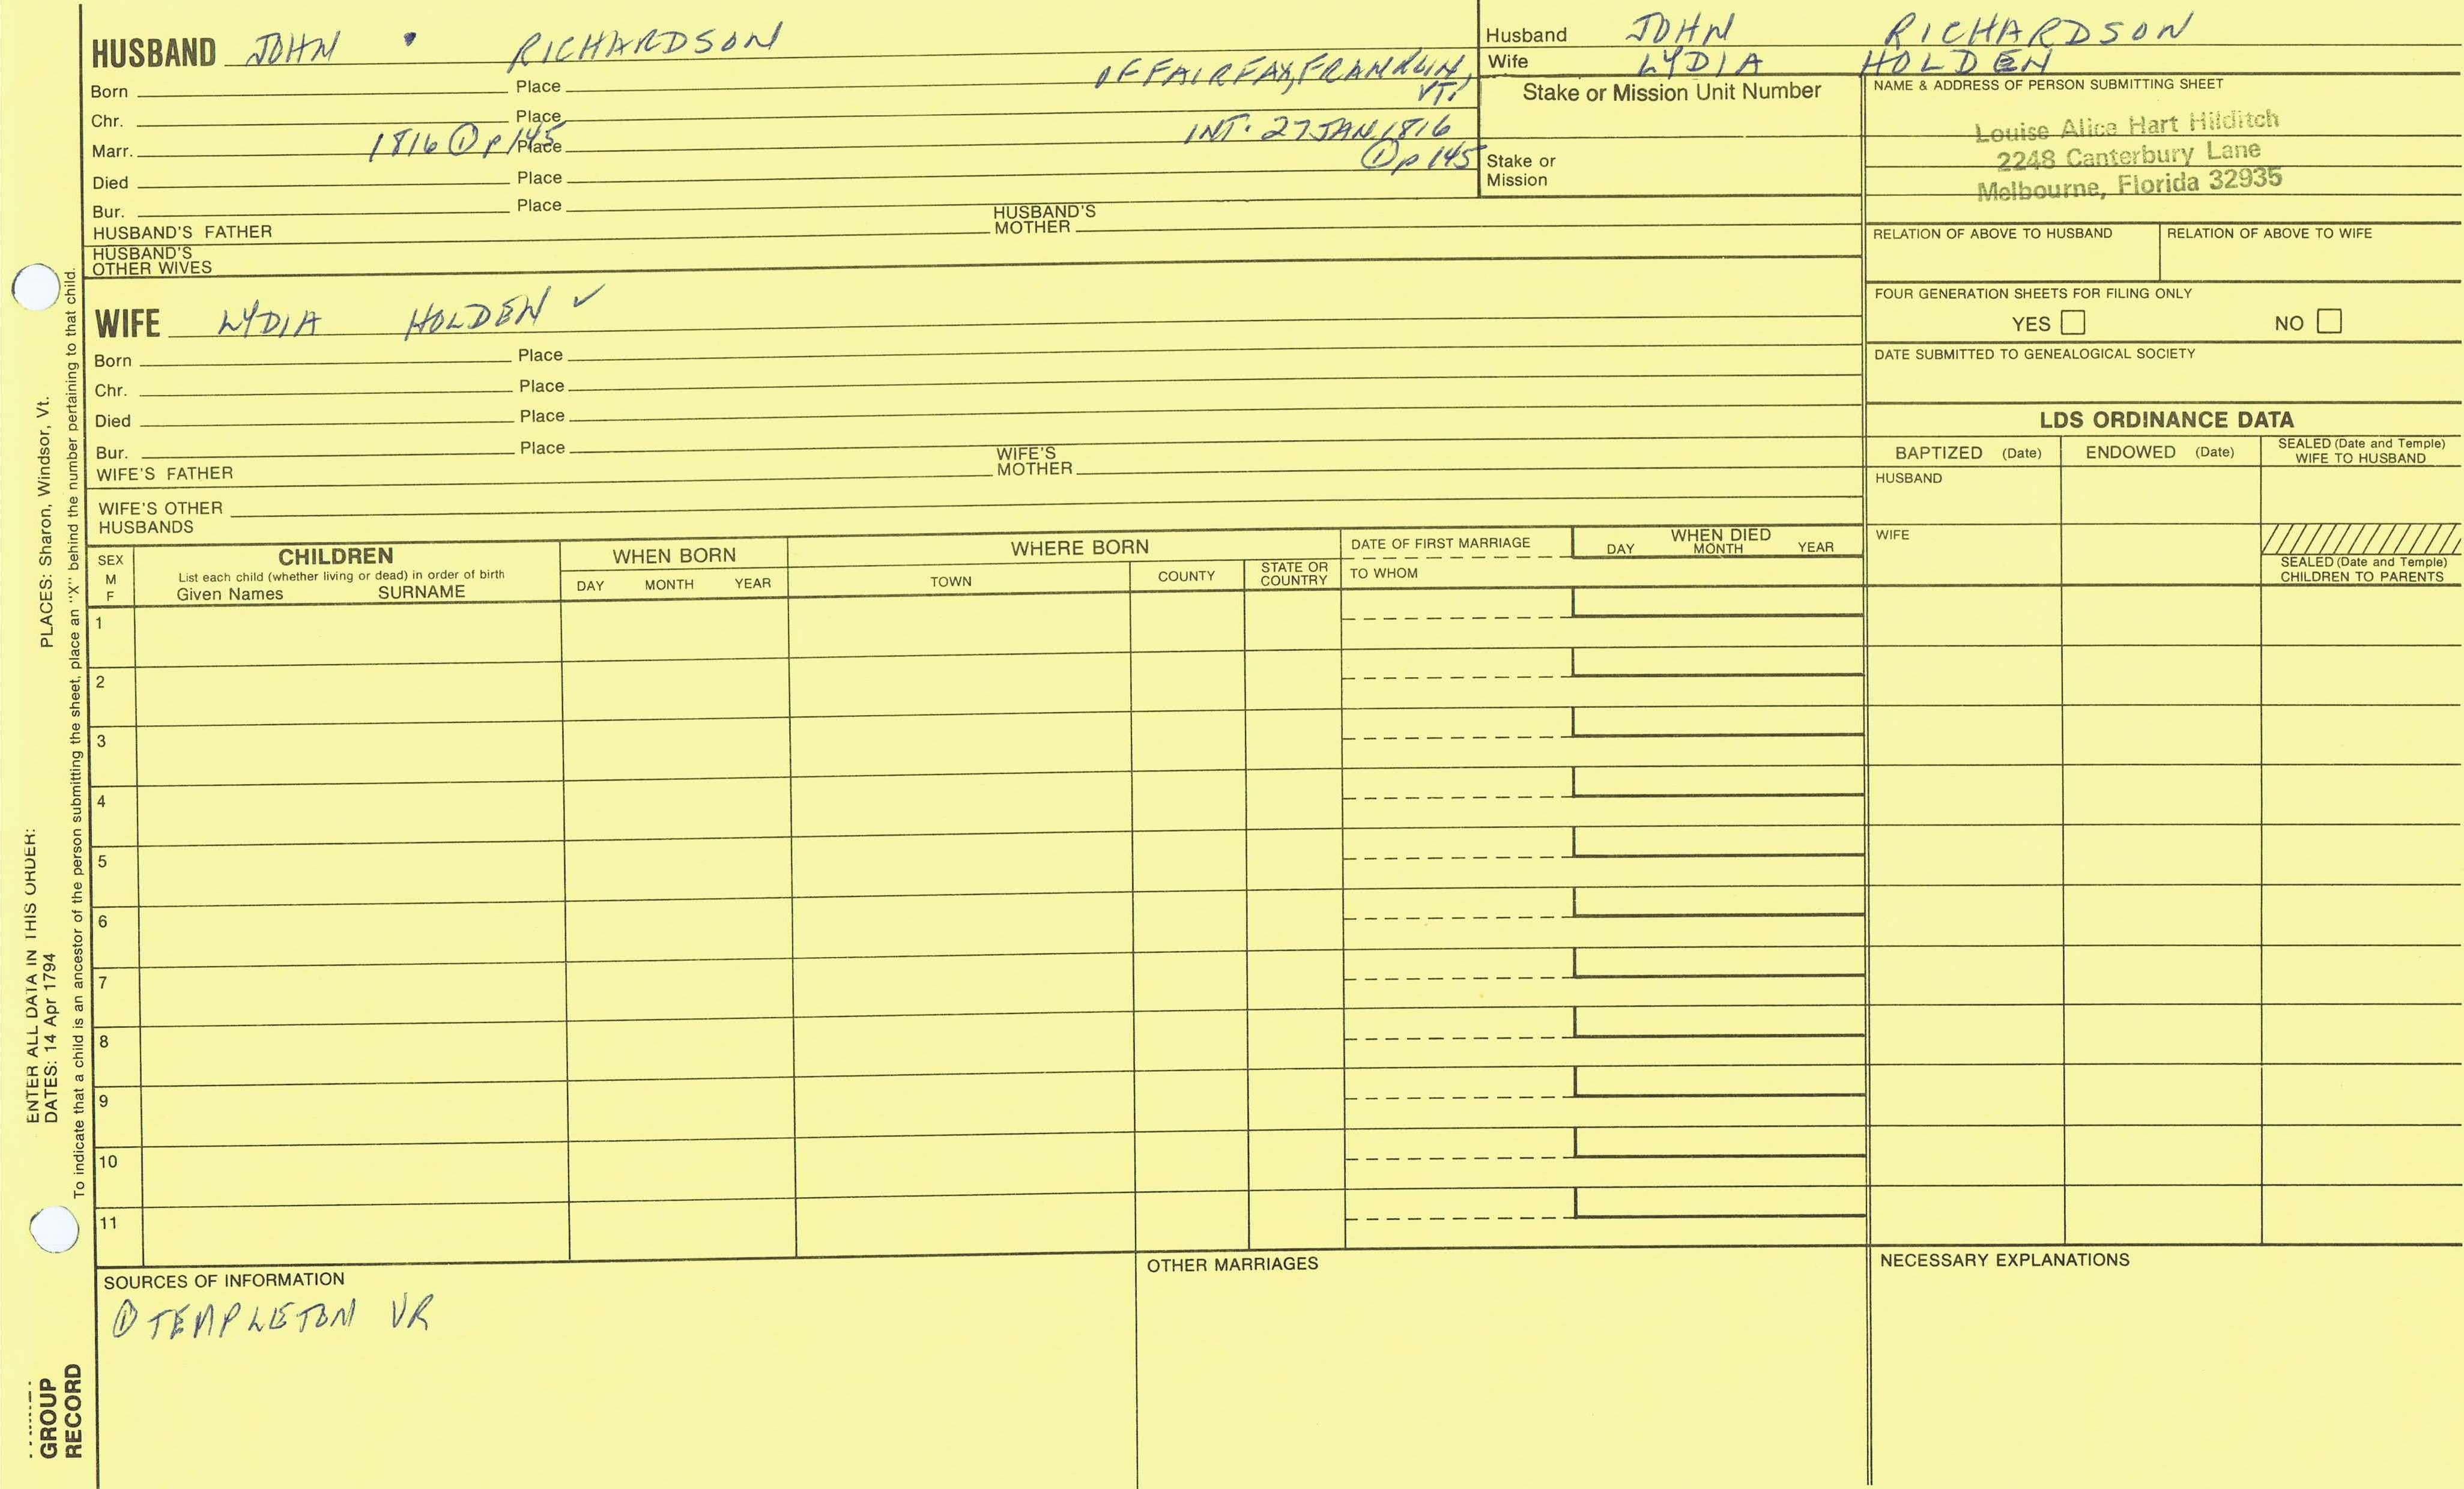 HUSBAND JOHN RICHARDSON
Born Place OF FAIRFAX, FRANKLIN, VT.
Chr. Place
Marr. 1816 ① p 145 Place INT. 27 JAN 1816 ① p 145
Died Place
Bur. Place
HUSBAND'S FATHER HUSBAND'S MOTHER
HUSBAND'S OTHER WIVES
Husband JOHN RICHARDSON
Wife LYDIA HOLDEN
Stake or Mission Unit Number
Stake or Mission
NAME & ADDRESS OF PERSON SUBMITTING SHEET
Louise Alice Hart Hilditch
2248 Canterbury Lane
Melbourne, Florida 32935
RELATION OF ABOVE TO HUSBAND RELATION OF ABOVE TO WIFE
FOUR GENERATION SHEETS FOR FILING ONLY
YES NO
DATE SUBMITTED TO GENEALOGICAL SOCIETY
WIFE LYDIA HOLDEN ✓
Born Place
Chr. Place
Died Place
Bur. Place
WIFE'S FATHER WIFE'S MOTHER
WIFE'S OTHER HUSBANDS
LDS ORDINANCE DATA
BAPTIZED (Date) ENDOWED (Date) SEALED (Date and Temple) WIFE TO HUSBAND
HUSBAND
WIFE
SEALED (Date and Temple) CHILDREN TO PARENTS
SEX M F
CHILDREN
List each child (whether living or dead) in order of birth
Given Names SURNAME
WHEN BORN
DAY MONTH YEAR
WHERE BORN
TOWN COUNTY STATE OR COUNTRY
DATE OF FIRST MARRIAGE
TO WHOM
WHEN DIED
DAY MONTH YEAR
1
2
3
4
5
6
7
8
9
10
11
SOURCES OF INFORMATION
① TEMPLETON VR
OTHER MARRIAGES
NECESSARY EXPLANATIONS
ENTER ALL DATA IN THIS ORDER:
DATES: 14 Apr 1794 PLACES: Sharon, Windsor, Vt.
To indicate that a child is an ancestor of the person submitting the sheet, place an "X" behind the number pertaining to that child.
GROUP
RECORD